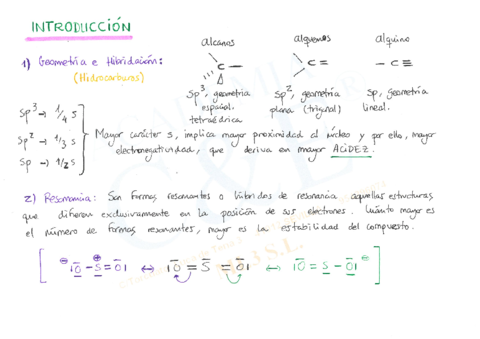 INTRODUCCIÓN
alcanos alquenos alquino
1) Geometría e Hibridación:
(Hidrocarburos)
C C = - C ≡
sp³, geometría sp², geometría sp, geometría
espacial. plana (trigonal) lineal.
tetraédrica
sp³ → 1/4 s
sp² → 1/3 s
sp → 1/2 s
Mayor carácter s, implica mayor proximidad al núcleo y por ello, mayor
electronegatividad, que deriva en mayor ACIDEZ.
2) Resonancia: Son formas resonantes o híbridos de resonancia aquellas estructuras
que difieren exclusivamente en la posición de sus electrones. Cuánto mayor es
el número de formas resonantes, mayor es la estabilidad del compuesto.
[ ⊖ |O̅ - S̅ ⊕ = O̅| ↔ |O̅ = S̅ = O̅| ↔ |O̅ = S - O̅| ⊖ ]